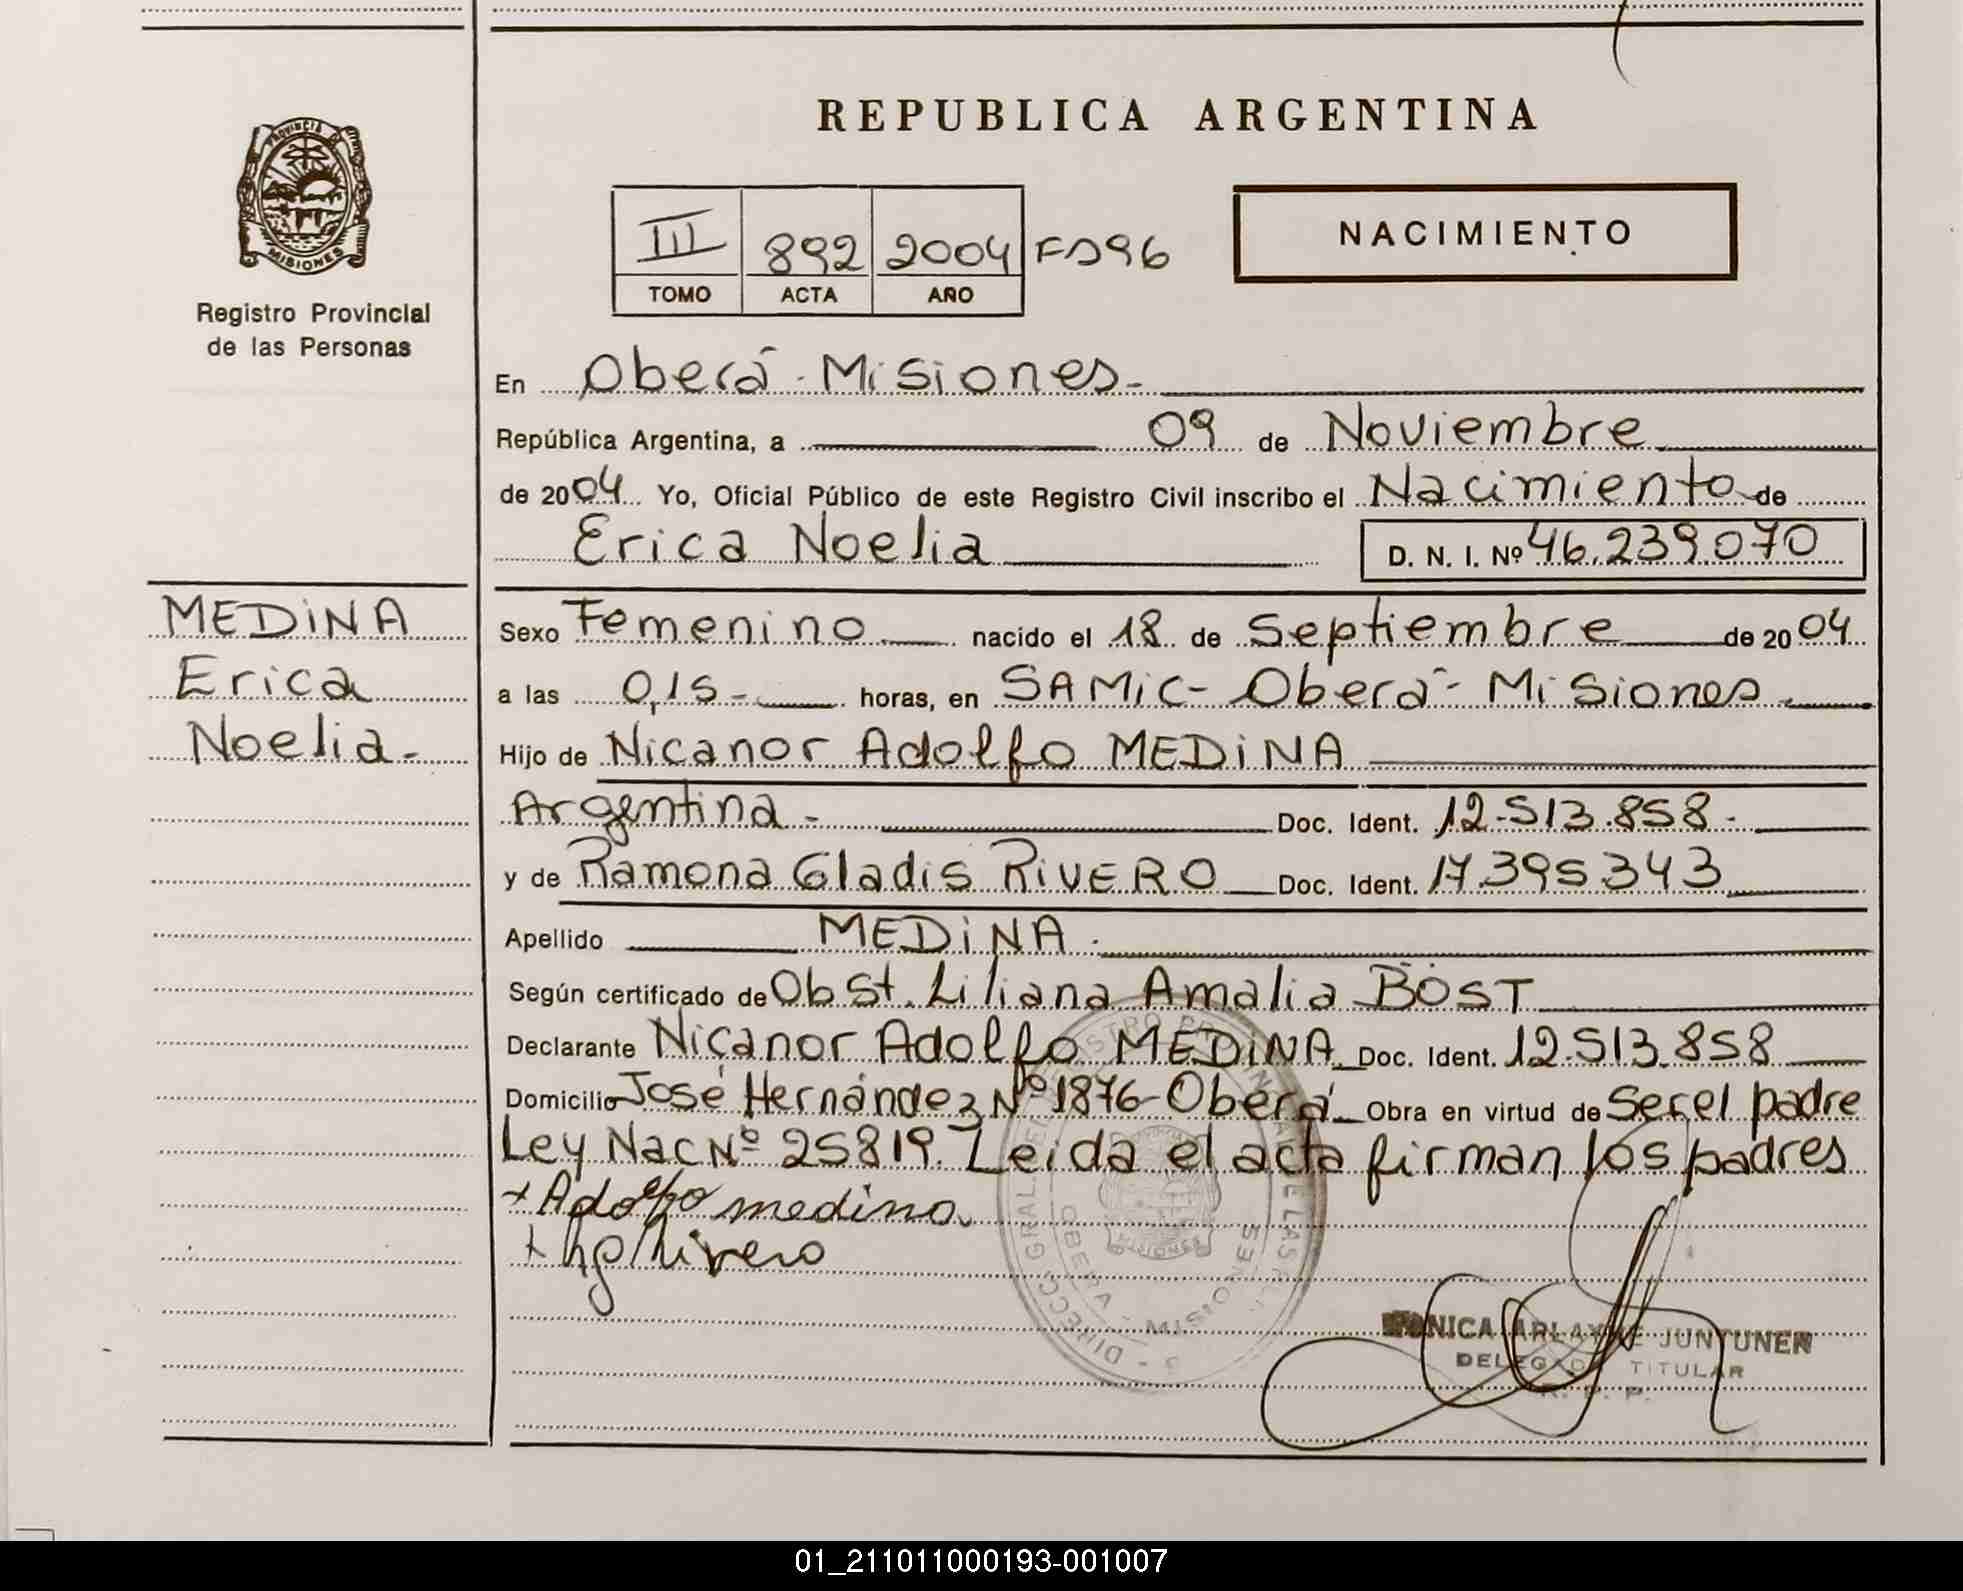 REPUBLICA ARGENTINA
PROVINCIA DE
MISIONES
Registro Provincial
de las Personas
III 892 2004 Fº 96
TOMO ACTA AÑO
NACIMIENTO
En Oberá - Misiones -
República Argentina, a 09 de Noviembre
de 2004 Yo, Oficial Público de este Registro Civil inscribo el Nacimiento de
Erica Noelia D. N. I. Nº 46.239.070
MEDINA
Erica
Noelia -
Sexo Femenino nacido el 18 de Septiembre de 2004
a las 0,15 - horas, en SAMIC - Oberá - Misiones -
Hijo de Nicanor Adolfo MEDINA
Argentina - Doc. Ident. 12.513.858 -
y de Ramona Gladis RIVERO Doc. Ident. 17.395.343
Apellido MEDINA.
Según certificado de Obst. Liliana Amalia BOST
Declarante Nicanor Adolfo MEDINA Doc. Ident. 12.513.858
Domicilio José Hernández Nº 1876 - Oberá Obra en virtud de Ser el padre
Ley Nac Nº 25819. Leida el acta firman los padres
+ Adolfo medina.
+ Rivero
OBERA - MISIONES
MISIONES
ARLAYNE JUNTUNEN
DELEGADA TITULAR
R. P. P.
01_211011000193-001007